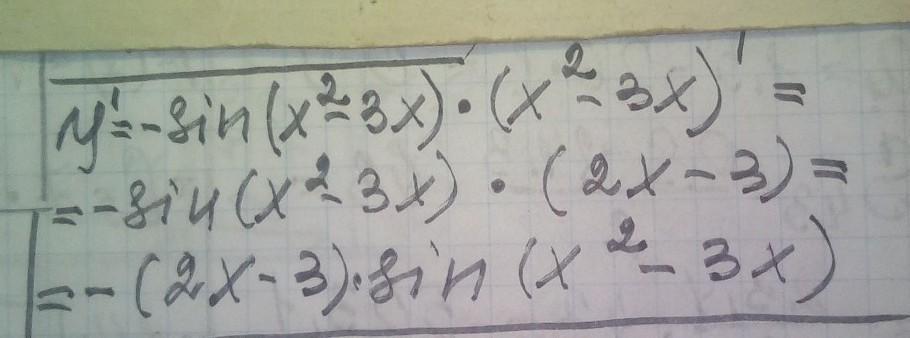 y'=-sin(x²-3x)·(x²-3x)'=
=-sin(x²-3x)·(2x-3)=
=-(2x-3)·sin(x²-3x)